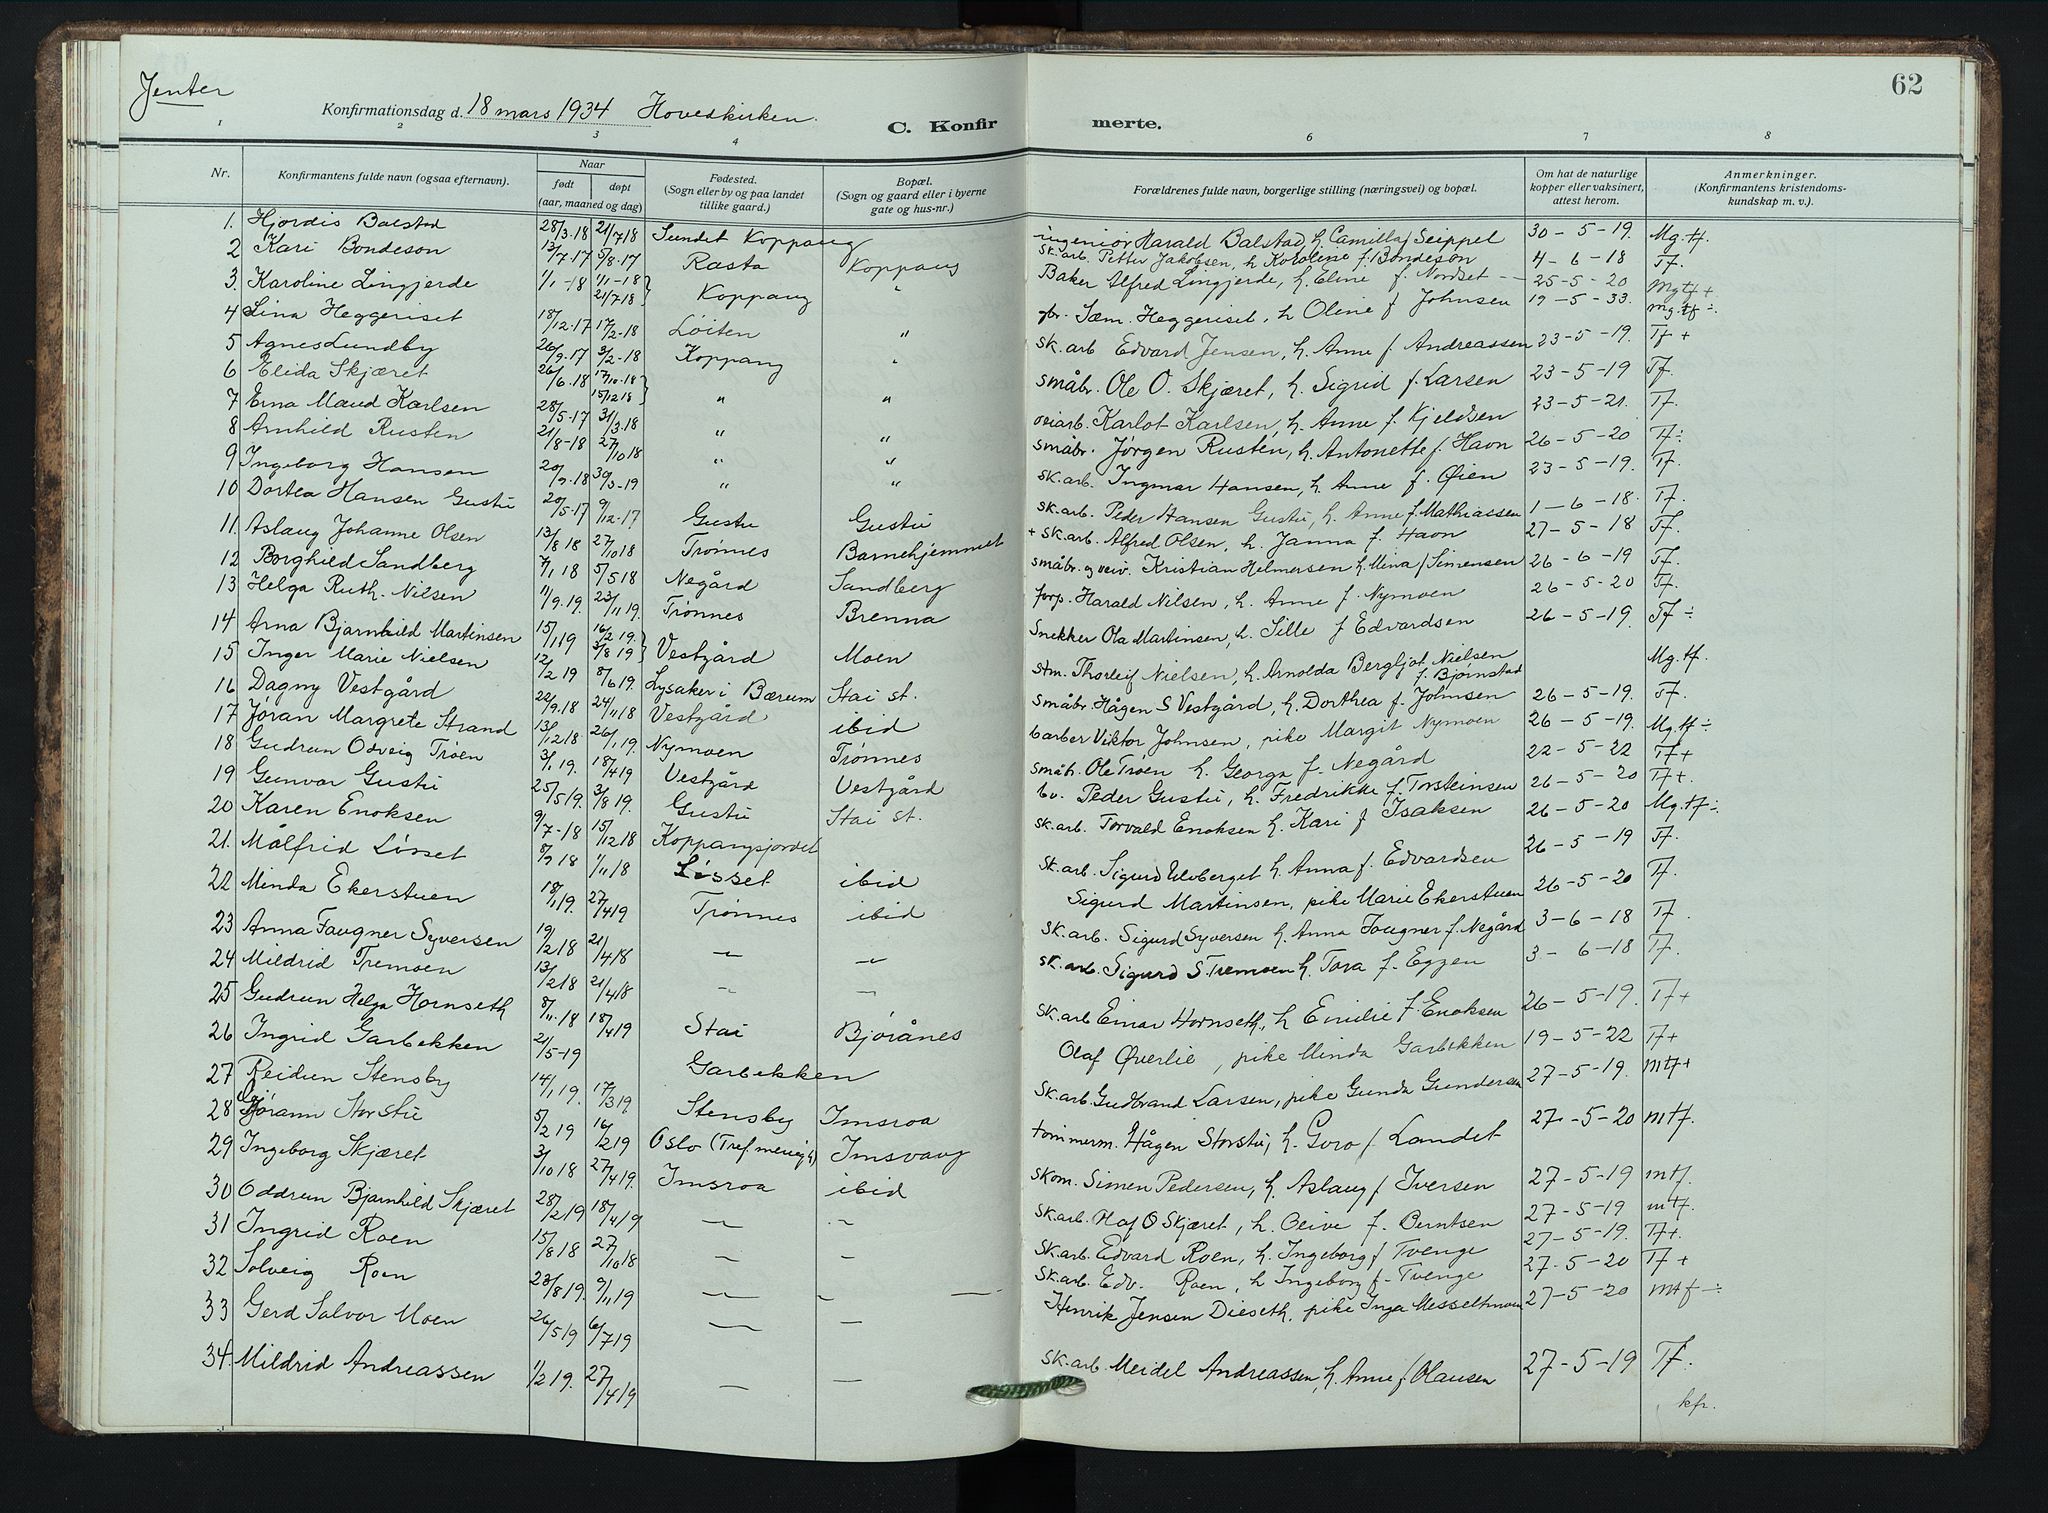 Jenter
62
Konfirmationsdag d. 18 mars 1934 Hovedkirken.
C. Konfirmerte.
1 2 3 4 6 7 8
Nr. Konfirmantens fulde navn (ogsaa efternavn). Naar født døpt (aar, maaned og dag) Fødested. (Sogn eller by og paa landet tillike gaard.) Bopæl. (Sogn og gaard eller i byerne gate og hus-nr.) Forældrenes fulde navn, borgerlige stilling (næringsvei) og bopæl. Om hat de naturlige kopper eller vaksinert, attest herom. Anmerkninger. (Konfirmantens kristendomskundskap m. v.).
1. Hjordis Balstad 28/3.18 21/7 18 Sundet Koppang ingeniør Harald Balstad, h. Camilla f Seippel 30-5-19. Mg.tf.
2 Kari Bondeson 13/7.17 9/8.17 Rasta Koppang sk.arb. Petter Jakobsen, h Karoline f. Bondeson 4-6-18 Tf.
3. Karoline Lingjerde 1/1-18 1/1-18 21/7 18 Koppang " Baker Alfred Lingjerde, h. Eline f. Nordset 25-5-20 Mgtf+
4 Lina Heggeriset 18/12.17 17/2-18 Løiten " gbr. Sæm. Heggeriset, h Oline f Johnsen 19-5-33. mg.tf÷.
5 Agnes Lundby 26/9.17 3/2-18 Koppang " sk.arb Edvard Jensen, h. Anne f Andreassen 23-5-19. Tf+
6 Elida Skjæret 26/6.18 17/10.18 15/12 18 småbr. Ole O. Skjæret, h. Sigrid f. Larsen 23-5-19 Tf.
7 Erna Maud Karlsen 28/5.17 31/3.18 " " veiarb. Karlot Karlsen, h. Anne f. Kjeldsen 23-5-21. Tf.
8 Arnhild Rusten 21/8-18 27/10 18 " " småbr. Jørgen Rusten, h. Antonette f. Havn 26-5-20 Tf÷
9 Ingeborg Hansen 20/9.18 30/3-19 " " sk.arb. Ingmar Hansen, h. Anne f. Øien 23-5-19. Tf.
10 Dortea Hansen Gustu 20/5.17 9/12.17 Gustu Gustu sk.arb. Peder Hansen Gustu, h. Anne f. Mathiassen 1-6-18. Tf.
11. Aslaug Johanne Olsen 13/8 18 27/10 18 Trønnes Barnehjemmet + sk.arb. Alfred Olsen, h. Janna f. Havn 27-5-18 Tf.
12 Borghild Sandberg 7/1 18 5/5 18 Negård Sandberg småbr. og veiv. Kristian Helmersen h. Mina f Simensen 26-6-19 Tf.
13 Helga Ruth. Nilsen 11/9.19. 23/11 19. Trønnes Brenna forp. Harald Nilsen, h. Anne f. Nymoen 26-5-20 Tf.
14 Arna Bjarnhild Martinsen 15/1 19 16/2 19. 3/8 19 Vestgård Moen Snekker Ola Martinsen, h. Sille f Edvardsen 26-5-19. Tf÷
15 Inger Marie Nielsen 12/2 19 8/6 19. Lysaker i Bærum Stai st. stm. Thorleif Nielsen, h. Arnolda Bergljot Nielsen f. Bjørnstad Mg.tf.
16 Dagny Vestgård 22/9.18 24/11 18 Vestgård ibid småbr. Hågen S Vestgård, h. Dorthea f. Johnsen 26-5-19. Tf.
17 Jøran Margrete Strand 13/12 18 26/1 19. Nymoen Trønnes barber Viktor Johnsen, pike Margit Nymoen 26-5-19. Mg.tf÷
18 Gudrun Odveig Trøen 3/1 19. 18/4 19 Vestgård Vestgård småbr. Ole Trøen h. Georga f. Negård 22-5-22 Tf+
19 Gunvor Gustu 25/5 19. 3/8 19. Gustu Stai st. bv. Peder Gustu, h. Fredrikke f. Torsteinsen 26-5-20 Tf+.
20 Karen Enoksen 9/7-18 15/12 18 Koppangsjordet sk.arb. Torvald Enoksen h. Kari f Isaksen 26-5-20 Mg.tf÷.
21. Målfrid Løsset 8/9 18 1/11 18 Løsset ibid sk.arb. Sigurd Ulvberget h. Anna f. Edvardsen 26-5-19 Tf.
22 Minda Ekerstuen 18/1 19. 27/4 19 Trønnes ibid Sigurd Martinsen, pike Marie Ekerstuen 26-5-20 Tf.
23 Anna Faugner Syversen 19/2 18 21/4 18 — — sk.arb. Sigurd Syversen h. Anna Fougner f. Negård 3-6-18 Tf.
24 Mildrid Tremoen 13/2 18 21/4 18 — — sk.arb. Sigurd S. Tremoen h. Tora f. Eggen 3-6-18 Tf.
25 Gudrun Helga Hornseth 8/11.18 18/4 19 Stai Bjørånes sk.arb Einar Hornseth, h Emilie f. Enoksen 26-5-19. Tf+
26 Ingrid Garbekken 21/5-19 Garbekken Olaf Øverlie, pike Minda Garbekken 19-5-22 Tf+
27 Reidun Stensby 14/1 19. 17/3 19 Stensby Imsroa sk.arb. Gudbrand Larsen, pike Gunda Gundersen 27-5-19. mtf+
28 Gjørann Storstu 5/2 19 16/2 19 Oslo Imsvang tømmerm. Hågen Storstu, h. Goro f Landet 27-5-20 mtf.
29 Ingeborg Skjæret 3/10 18 27/4 19. Imsroa ibid skom. Simen Pedersen, h. Aslaug f Iversen 27-5-19 mtf.
30 Oddrun Bjarnhild Skjæret 28/2 19 18/4 19 — — sk.arb. Olaf O Skjæret, h. Olive f. Berntsen 27-5-19 mtf.
31 Ingrid Roen 15/8 18 27/10 18 — — sk.arb. Edvard Roen, h. Ingeborg f Tvenge 27-5-19. Tf+.
32 Solveig Roen 23/8 19. 9/11 19 — — sk.arb. Edv. Roen, h Ingeborg f. Tvenge 27-5-20 Tf+
33 Gerd Salvor Moen 26/5 19 6/7 19 — — Henrik Jensen Dieseth, pike Inga Messeltmoen 27-5-20 mtf÷
34. Mildrid Andreassen 1/2 19. 27/4 19 — — sk.arb. Meidel Andreassen, h. Anne f Olausen 27-5-19 Tf.
kfr.